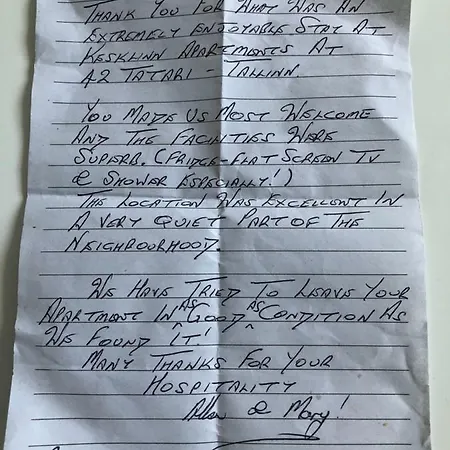 THANK YOU FOR WHAT WAS AN
EXTREMELY ENJOYABLE STAY AT
KESKLINN APARTMENTS AT
42 TATARI - TALLINN.
YOU MADE US MOST WELCOME
AND THE FACILITIES WERE
SUPERB. (FRIDGE-FLAT SCREEN TV
& SHOWER ESPECIALLY!)
THE LOCATION WAS EXCELLENT IN
A VERY QUIET PART OF THE
NEIGHBOURHOOD.
WE HAVE TRIED TO LEAVE YOUR
APARTMENT IN AS GOOD AS CONDITION AS
WE FOUND IT!
MANY THANKS FOR YOUR
HOSPITALITY
& Mary!